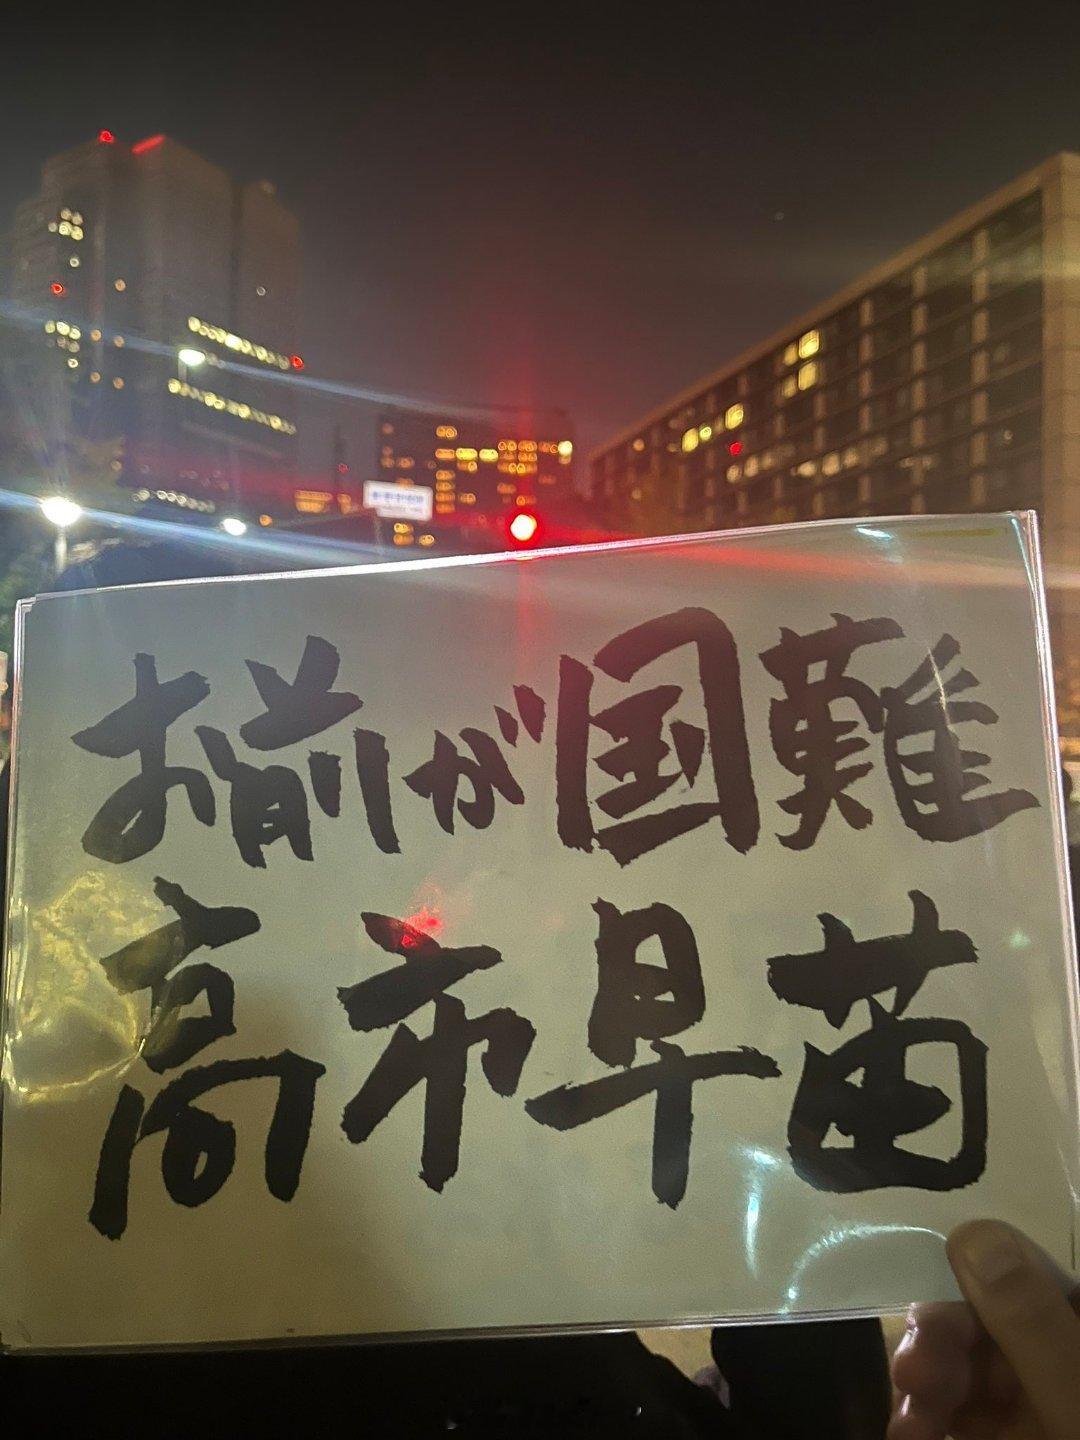 お前が国難
高市早苗